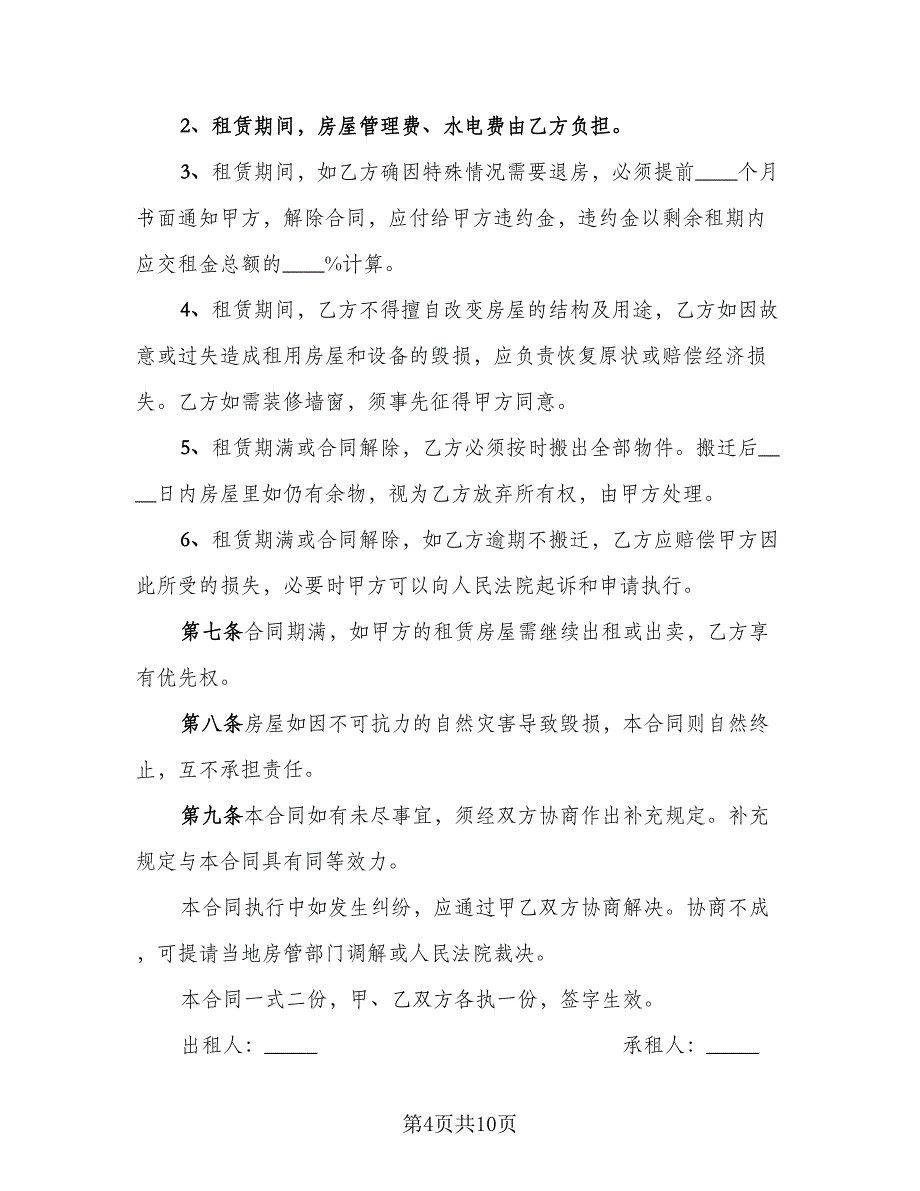 2、租赁期间，房屋管理费、水电费由乙方负担。
3、租赁期间，如乙方确因特殊情况需要退房，必须提前____个月
书面通知甲方，解除合同，应付给甲方违约金，违约金以剩余租期内
应交租金总额的____%计算。
4、租赁期间，乙方不得擅自改变房屋的结构及用途，乙方如因故
意或过失造成租用房屋和设备的毁损，应负责恢复原状或赔偿经济损
失。乙方如需装修墙窗，须事先征得甲方同意。
5、租赁期满或合同解除，乙方必须按时搬出全部物件。搬迁后__
__日内房屋里如仍有余物，视为乙方放弃所有权，由甲方处理。
6、租赁期满或合同解除，如乙方逾期不搬迁，乙方应赔偿甲方因
此所受的损失，必要时甲方可以向人民法院起诉和申请执行。
第七条合同期满，如甲方的租赁房屋需继续出租或出卖，乙方享
有优先权。
第八条房屋如因不可抗力的自然灾害导致毁损，本合同则自然终
止，互不承担责任。
第九条本合同如有未尽事宜，须经双方协商作出补充规定。补充
规定与本合同具有同等效力。
本合同执行中如发生纠纷，应通过甲乙双方协商解决。协商不成
，可提请当地房管部门调解或人民法院裁决。
本合同一式二份，甲、乙双方各执一份，签字生效。
出租人：_____ 承租人：_____
第4页共10页